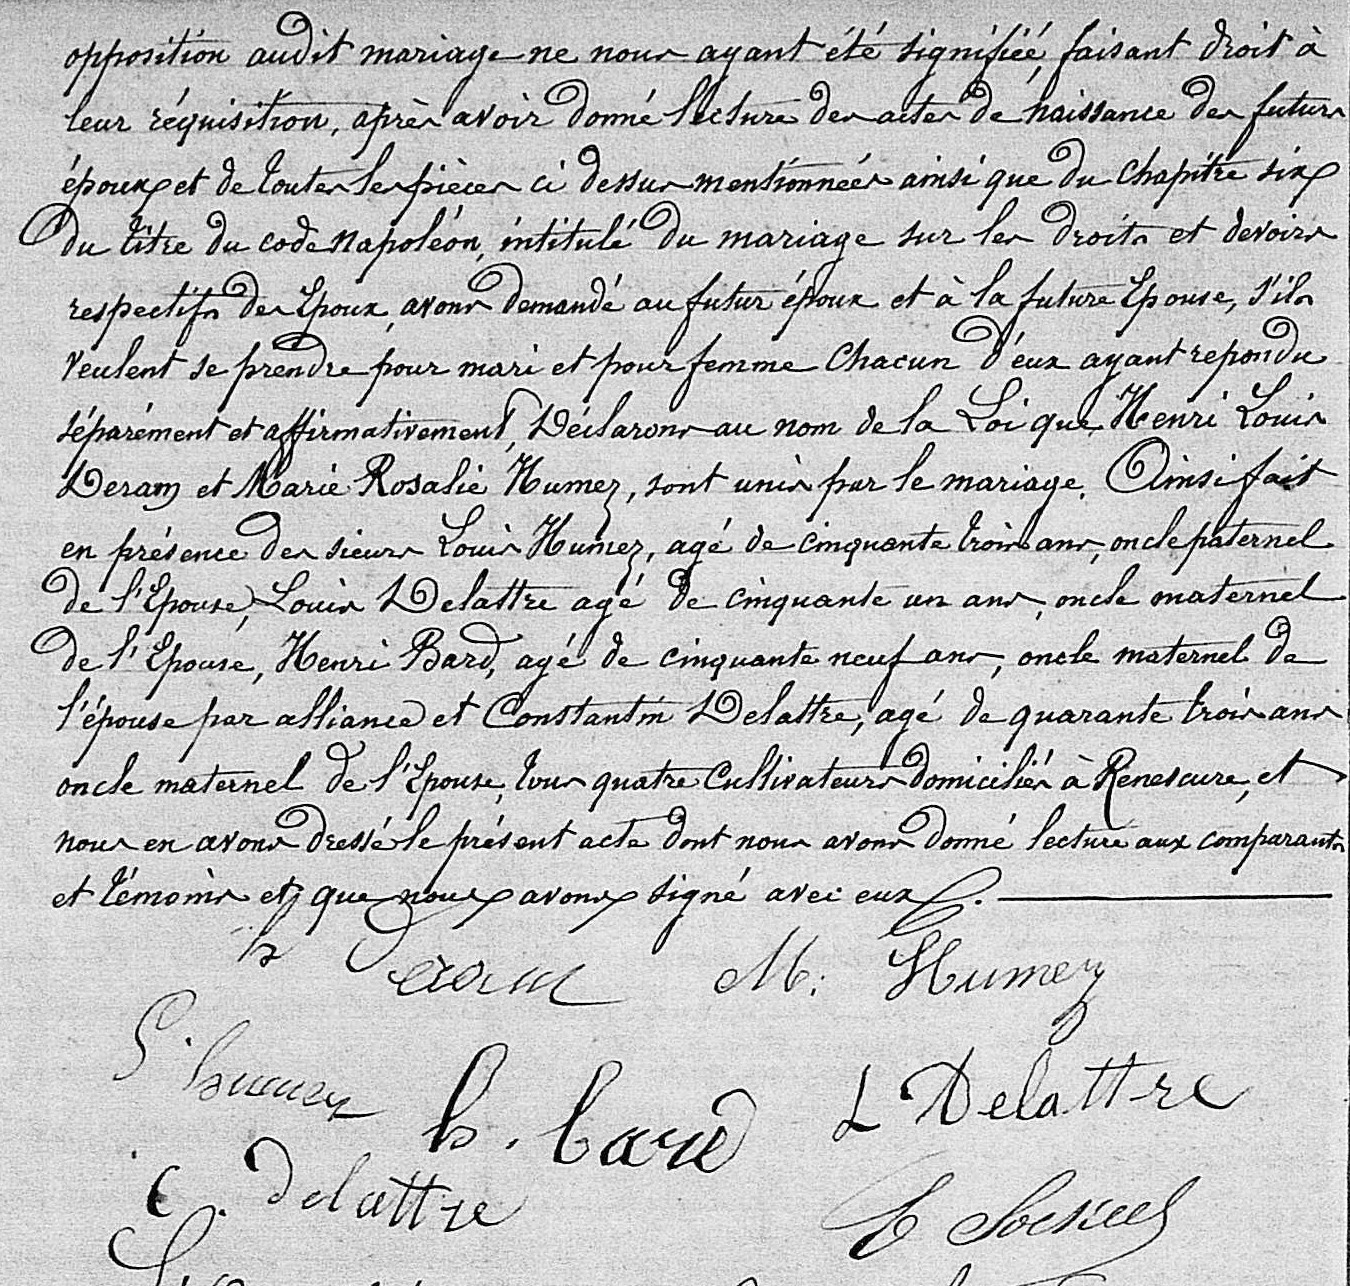 opposition audit mariage ne nous ayant été signifiée, faisant droit à
leur réquisition, après avoir donné lecture des actes de naissance des futurs
époux et de toutes les pièces ci dessus mentionnées ainsi que du chapitre six
du titre du code Napoléon, intitulé du mariage sur les droits et devoirs
respectifs des Epoux, avons demandé au futur époux et à la future Epouse, s'ils
veulent se prendre pour mari et pour femme Chacun d'eux ayant repondu
séparément et affirmativement, Déclarons au nom de la Loi que Henri Louis
Deram et Marie Rosalie Humez, sont unis par le mariage. Ainsi fait
en présence des sieurs Louis Humez, agé de cinquante trois ans, oncle paternel
de l'Epouse, Louis Delattre agé de cinquante un ans, oncle maternel
de l'Epouse, Henri Bard, agé de cinquante neuf ans, oncle maternel de
l'épouse par alliance et Constantin Delattre, agé de quarante trois ans
oncle maternel de l'Epouse, tous quatre Cultivateurs domiciliés à Renescure, et
nous en avons dressé le présent acte dont nous avons donné lecture aux comparants
et témoins et que nous avons signé avec eux.
h Deram M. Humez
L. humez h. bard L Delattre
C. Delattre